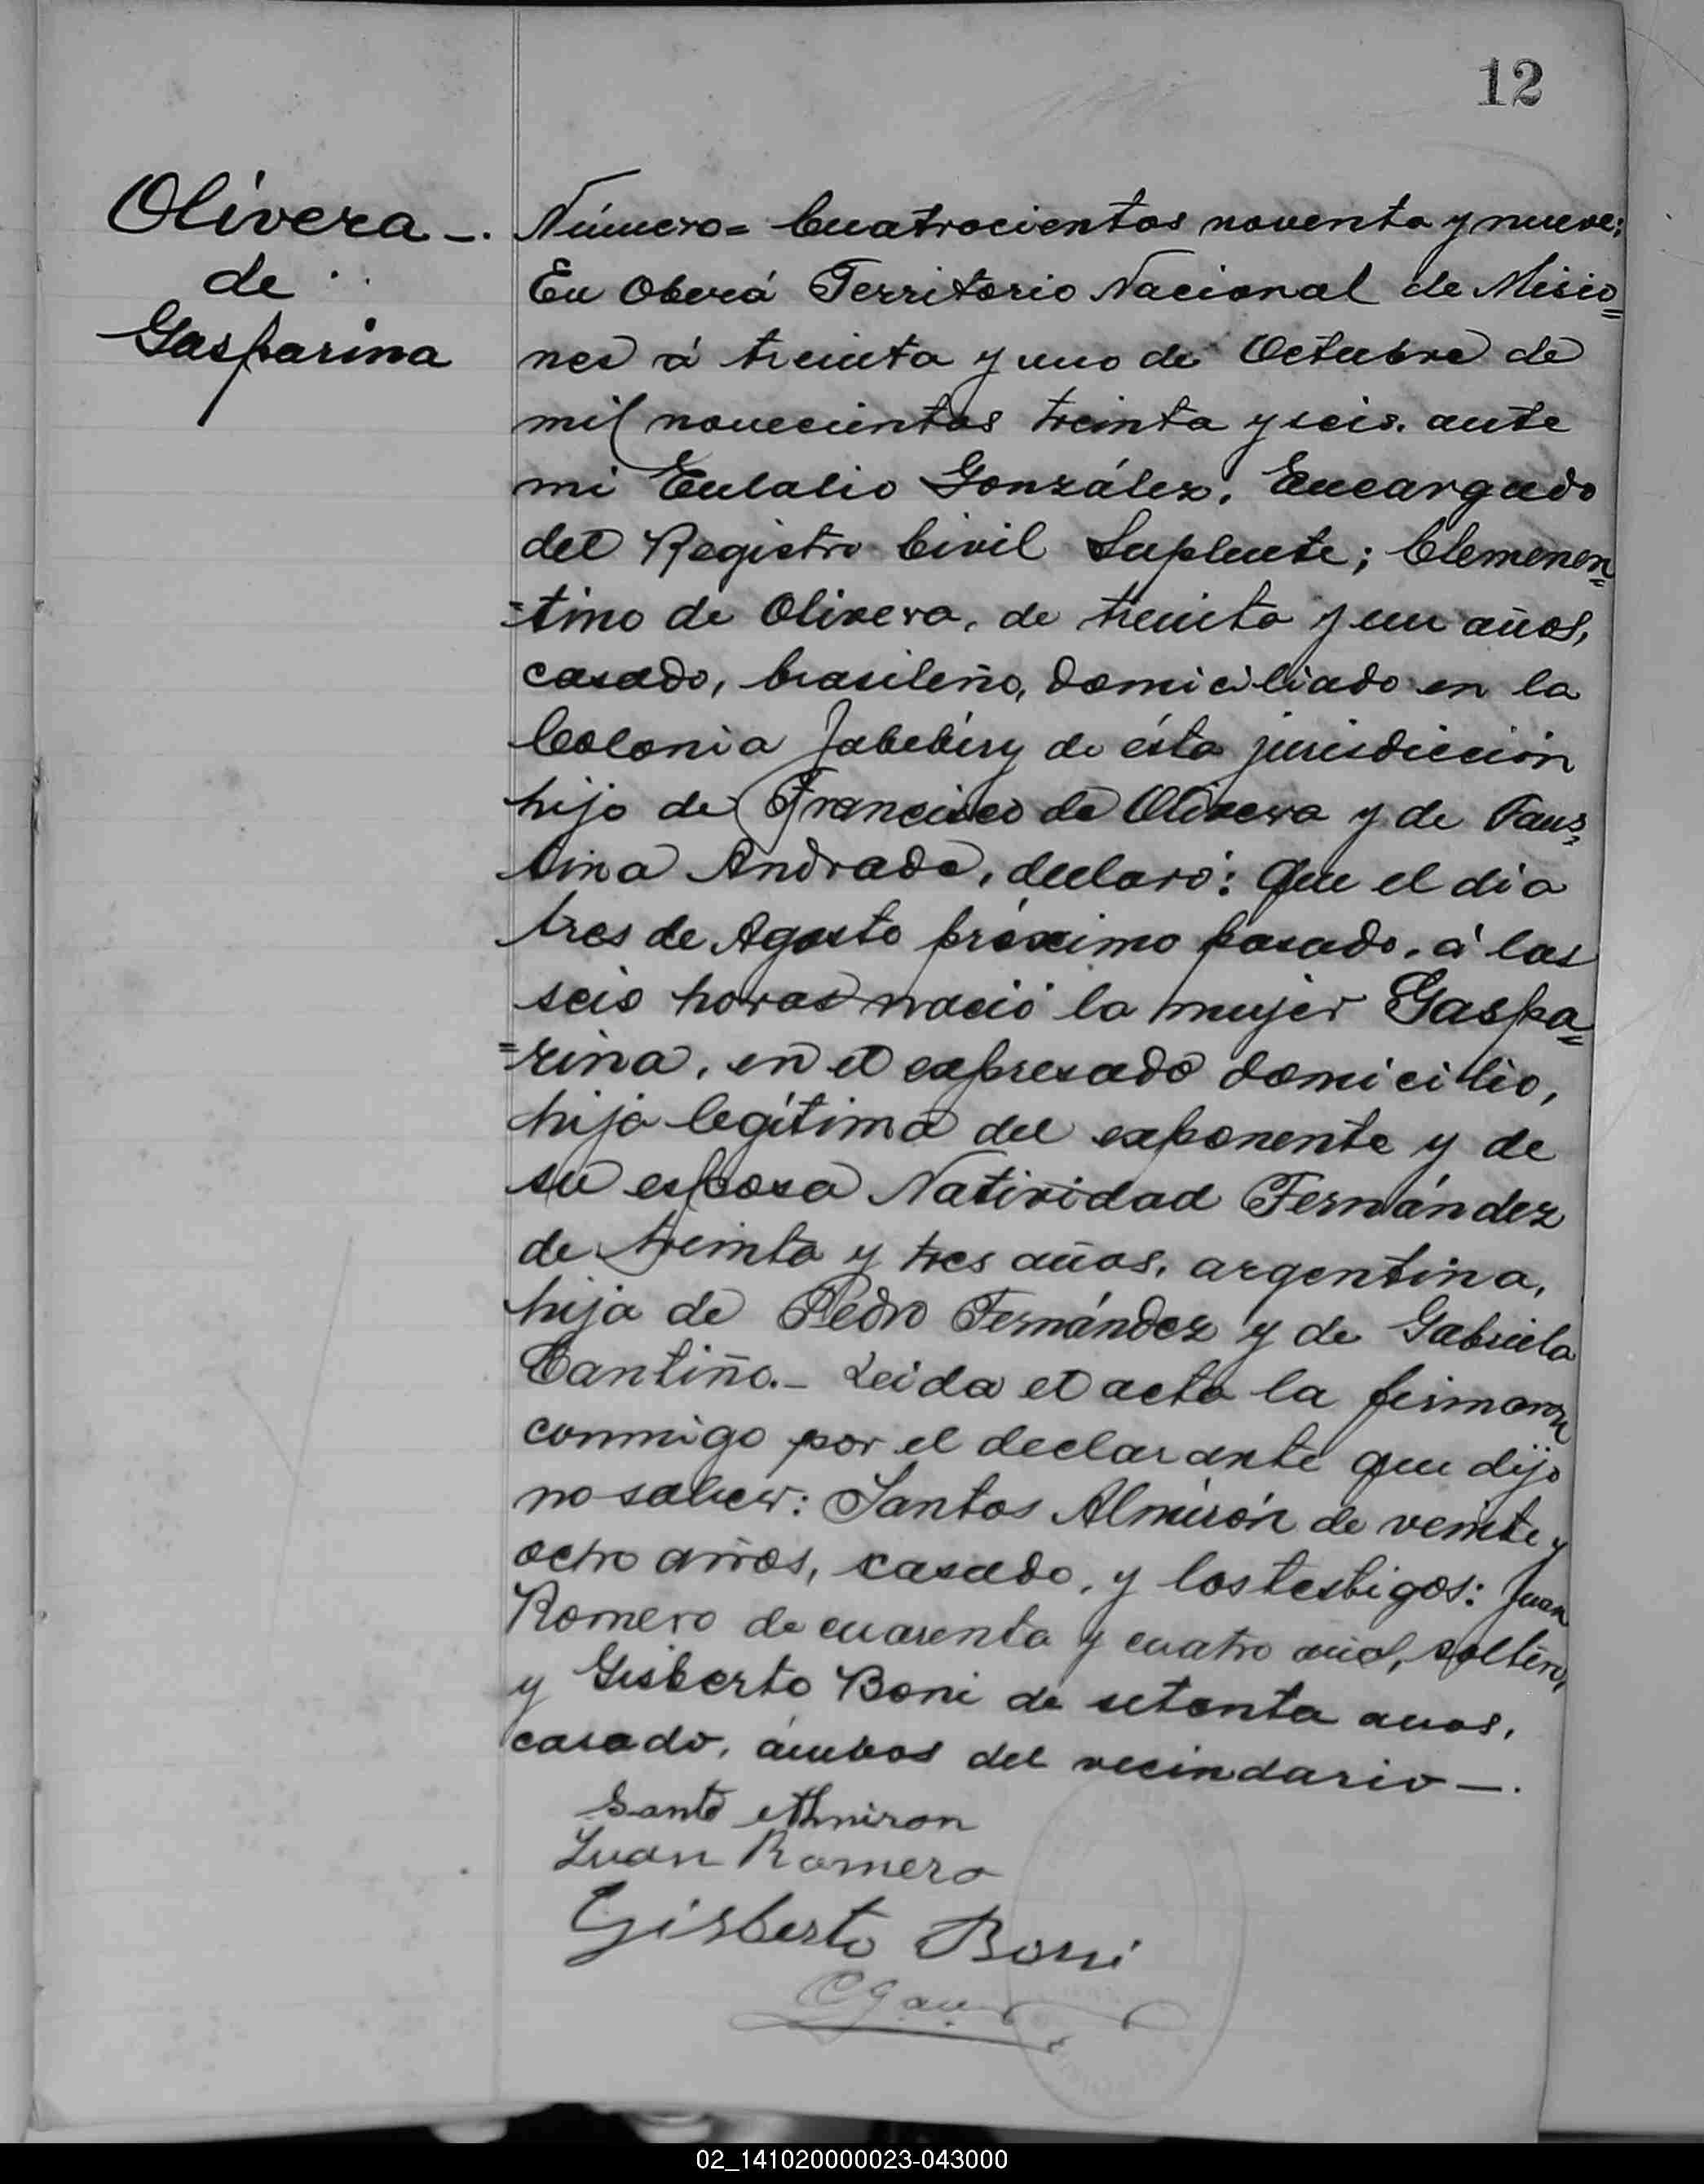 12
Olivera -.
de
Gasparina
Número = Cuatrocientos noventa y nueve:
En Oberá Territorio Nacional de Misio=
nes á treinta y uno de Octubre de
mil novecientos treinta y seis. ante
mi Eulalio González, Encargado
del Registro Civil Suplente; Clemenen=
=tino de Olivera, de treinta y un años,
casado, brasileño, domiciliado en la
Colonia Jabebiry de ésta jurisdicción
hijo de Francisco de Olivera y de Faus=
tina Andrade, declaró: Que el dia
tres de Agosto próximo pasado, á las
seis horas nació la mujer Gaspa=
=rina, en el expresado domicilio,
hija legítima del exponente y de
su esposa Natividad Fernández
de treinta y tres años, argentina,
hija de Pedro Fernández y de Gabriela
Cantiño.- Leida el acta la firmaron
conmigo por el declarante que dijo
no saber: Santos Almirón de veinte y
ocho años, casado, y los testigos: Juan
Romero de cuarenta y cuatro años, soltero,
y Gisberto Boni de setenta anos,
casado, ámbos del vecindario -.
Santo Almiron
Juan Romero
Gisberto Boni
02_141020000023-043000